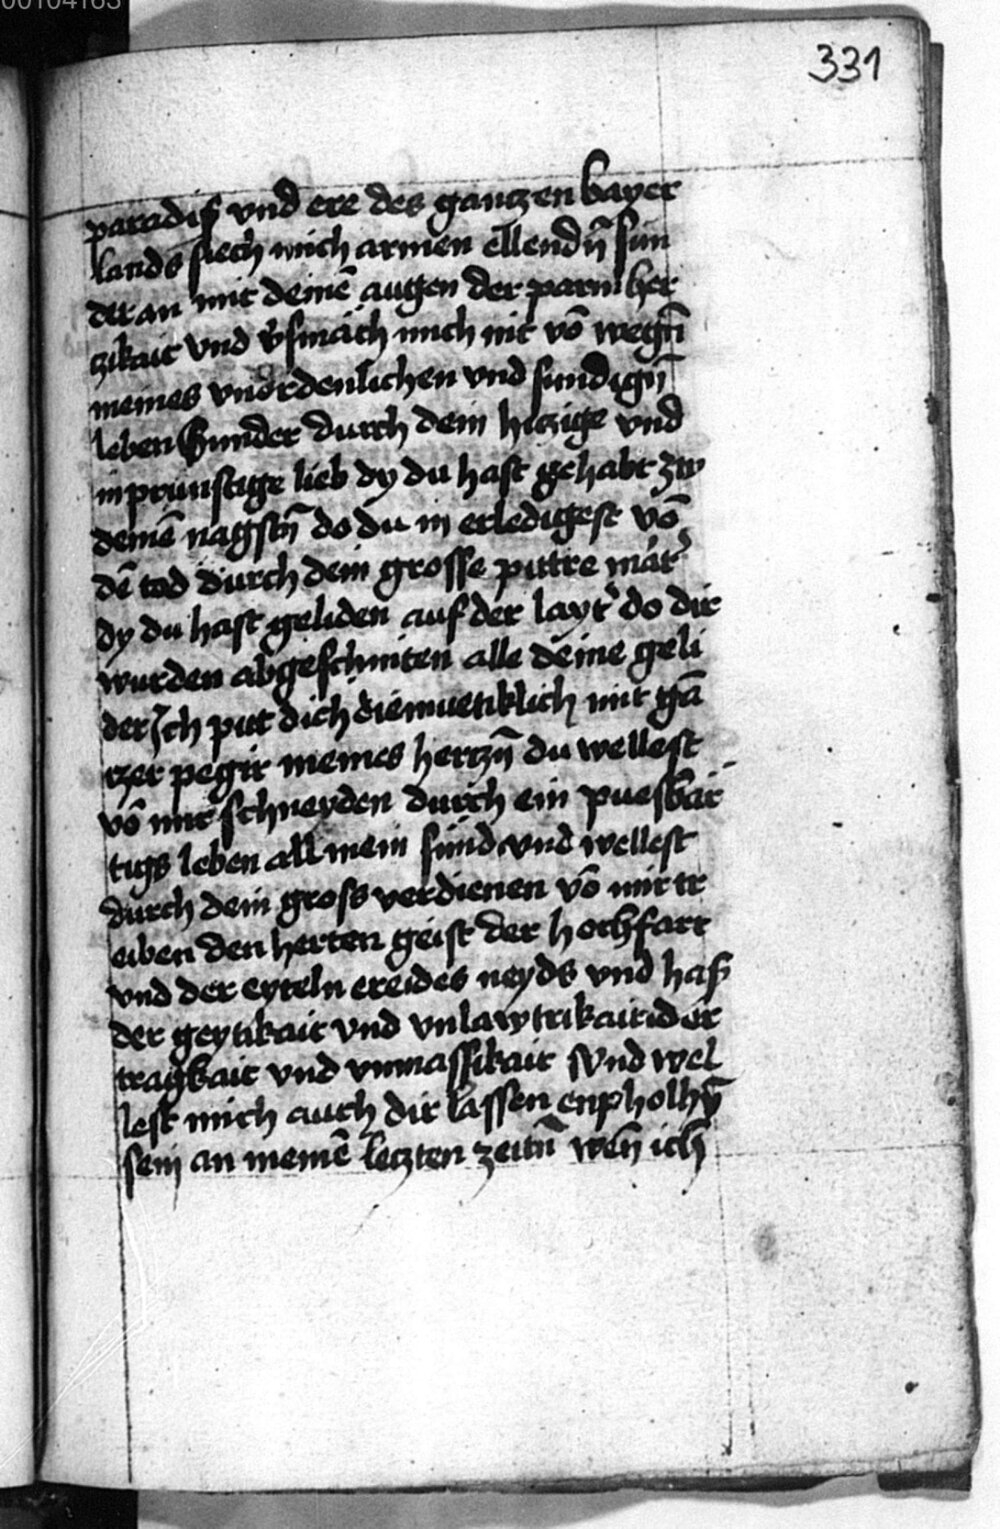 00104163
331
paradiß vnd ere des gantzen bayer
lands siech mich armen ellendn̄ sun
der an mit deinē augen der parmher
zikait vnd v̄smäch mich nit vō wegn̄
meines vnordenlichen vnd sundign̄
leben Sunder durch dein hitzige vnd
inprunstige lieb dy du hast gehabt zw
deinē nagstn̄ do du in erledigest vō
dē tod durch dein grosse pittre mart̉
dy du hast geliden auf der layt̉ do dir
wurden abgeschniten alle deine geli
der Ich pit dich diemuetiklich mit gā
tzer pegir meines hertzn̄ du wellest
vō mir schneyden durch ein puesbär
tigs leben all mein sünd vnd wellest
durch dein gross verdienen vō mir tr
eiben den herten geist der hochfart
vnd der eyteln ere des neyds vnd haß
der geytikait vnd vnlawtrikait der
tragkait vnd vnmassikait vnd wel
lest mich auch dir lassen enpholhn̄
sein an meinē letzten zeitn̄ wen̄ ich